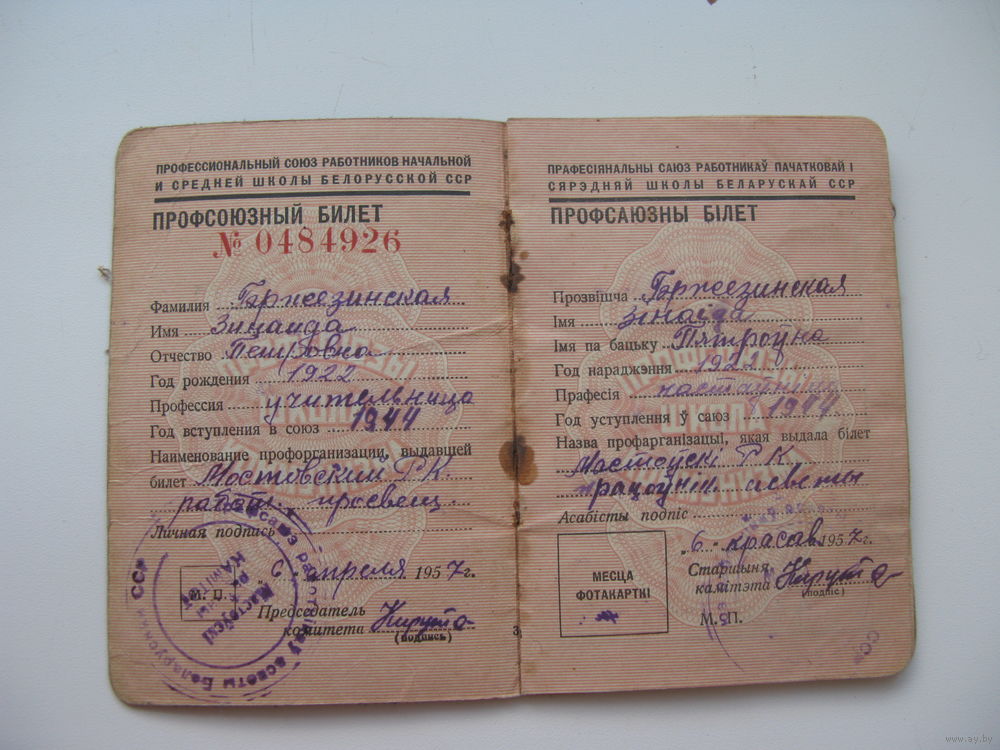 ПРОФЕССИОНАЛЬНЫЙ СОЮЗ РАБОТНИКОВ НАЧАЛЬНОЙ
И СРЕДНЕЙ ШКОЛЫ БЕЛОРУССКОЙ ССР
ПРОФСОЮЗНЫЙ БИЛЕТ
№ 0484926
Фамилия Гержезинская
Имя Зинаида
Отчество Петровна
Год рождения 1922
Профессия учительница
Год вступления в союз 1944
Наименование профорганизации, выдавшей
билет Мостовский РК
работ. просвещ.
Личная подпись
М. П.
6 апреля 1957 г.
Председатель
комитета
(подпись)
ПРАФЕСІЯНАЛЬНЫ САЮЗ РАБОТНІКАЎ ПАЧАТКОВАЙ І
СЯРЭДНЯЙ ШКОЛЫ БЕЛАРУСКАЙ ССР
ПРОФСАЮЗНЫ БІЛЕТ
Прозвішча Гержезинская
Імя Зінаіда
Імя па бацьку Пятроўна
Год нараджэння 1922
Прафесія настаўніца
Год уступлення ў саюз 1944
Назва профарганізацыі, якая выдала білет
Мастоўскі РК
рацоўнік асветы
Асабісты подпіс
МЕСЦА
ФОТАКАРТКІ
„6" красав. 1957 г.
Старшыня
камітэта
(подпіс)
М. П.
www.ay.by